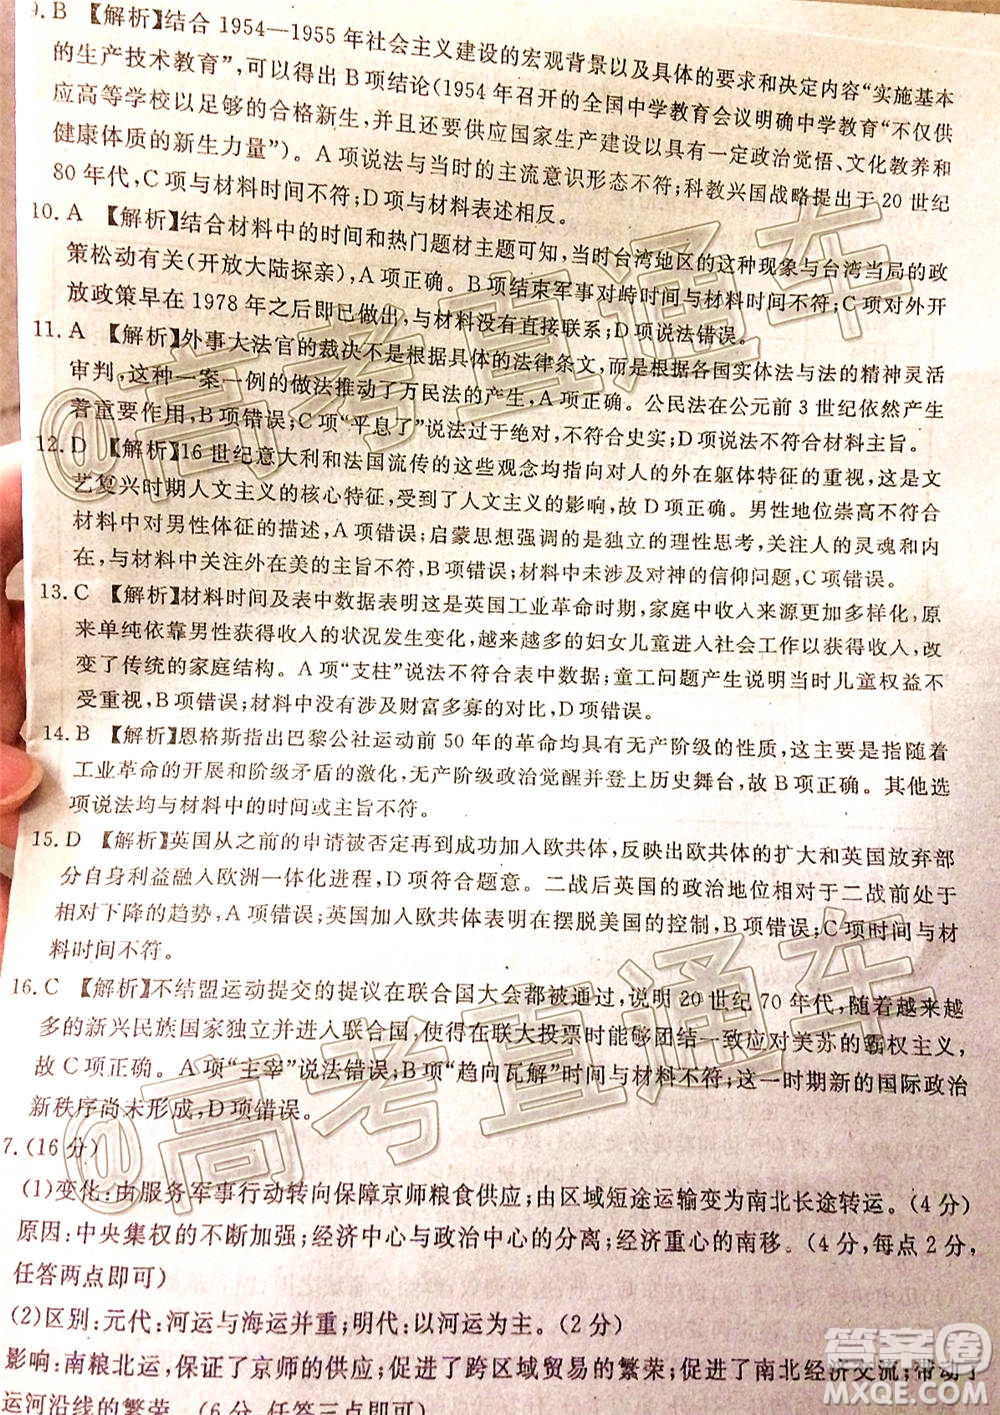 9. B 【解析】结合 1954—1955 年社会主义建设的宏观背景以及具体的要求和决定内容“实施基本
的生产技术教育”,可以得出 B 项结论(1954 年召开的全国中学教育会议明确中学教育“不仅供
应高等学校以足够的合格新生,并且还要供应国家生产建设以具有一定政治觉悟、文化教养和
健康体质的新生力量”)。A 项说法与当时的主流意识形态不符;科教兴国战略提出于 20 世纪
80 年代,C 项与材料时间不符;D 项与材料表述相反。
10. A 【解析】结合材料中的时间和热门题材主题可知,当时台湾地区的这种现象与台湾当局的政
策松动有关(开放大陆探亲),A 项正确。B 项结束军事对峙时间与材料时间不符;C 项对外开
放政策早在 1978 年之后即已做出,与材料没有直接联系;D 项说法错误。
11. A 【解析】外事大法官的裁决不是根据具体的法律条文,而是根据各国实体法与法的精神灵活
审判,这种一案一例的做法推动了万民法的产生,A 项正确。公民法在公元前 3 世纪依然产生
着重要作用,B 项错误;C 项“平息了”说法过于绝对,不符合史实;D 项说法不符合材料主旨。
12. D 【解析】16 世纪意大利和法国流传的这些观念均指向对人的外在躯体特征的重视,这是文
艺复兴时期人文主义的核心特征,受到了人文主义的影响,故 D 项正确。男性地位崇高不符合
材料中对男性体征的描述,A 项错误;启蒙思想强调的是独立的理性思考,关注人的灵魂和内
在,与材料中关注外在美的主旨不符,B 项错误;材料中未涉及对神的信仰问题,C 项错误。
13. C 【解析】材料时间及表中数据表明这是英国工业革命时期,家庭中收入来源更加多样化,原
来单纯依靠男性获得收入的状况发生变化,越来越多的妇女儿童进入社会工作以获得收入,改
变了传统的家庭结构。A 项“支柱”说法不符合表中数据;童工问题产生说明当时儿童权益不
受重视,B 项错误;材料中没有涉及财富多寡的对比,D 项错误。
14. B 【解析】恩格斯指出巴黎公社运动前 50 年的革命均具有无产阶级的性质,这主要是指随着
工业革命的开展和阶级矛盾的激化,无产阶级政治觉醒并登上历史舞台,故 B 项正确。其他选
项说法均与材料中的时间或主旨不符。
15. D 【解析】英国从之前的申请被否定再到成功加入欧共体,反映出欧共体的扩大和英国放弃部
分自身利益融入欧洲一体化进程,D 项符合题意。二战后英国的政治地位对于二战前处于
相对下降的趋势,A 项错误;英国加入欧共体表明在摆脱美国的控制,B 项错误;C 项时间与材
料时间不符。
16. C 【解析】不结盟运动提交的提议在联合国大会都被通过,说明 20 世纪 70 年代,随着越来越
多的新兴民族国家独立并进入联合国,使得在联大投票时能够团结一致应对美苏的霸权主义,
故 C 项正确。A 项“主宰”说法错误;B 项“趋向瓦解”时间与材料不符;这一时期新的国际政治
新秩序尚未形成,D 项错误。
7. (16 分)
(1)变化:由服务军事行动转向保障京师粮食供应;由区域短途运输变为南北长途转运。(4 分)
原因:中央集权的不断加强;经济中心与政治中心的分离;经济重心的南移。(4 分,每点 2 分,
任答两点即可)
(2)区别:元代:河运与海运并重;明代:以河运为主。(2 分)
影响:南粮北运,保证了京师的供应;促进了跨区域贸易的繁荣;促进了南北经济交流;带动了
运河沿线的繁荣。(6 分,任答三点即可)
@高考直通车
@高考直通车
答案圈
MXQE.COM